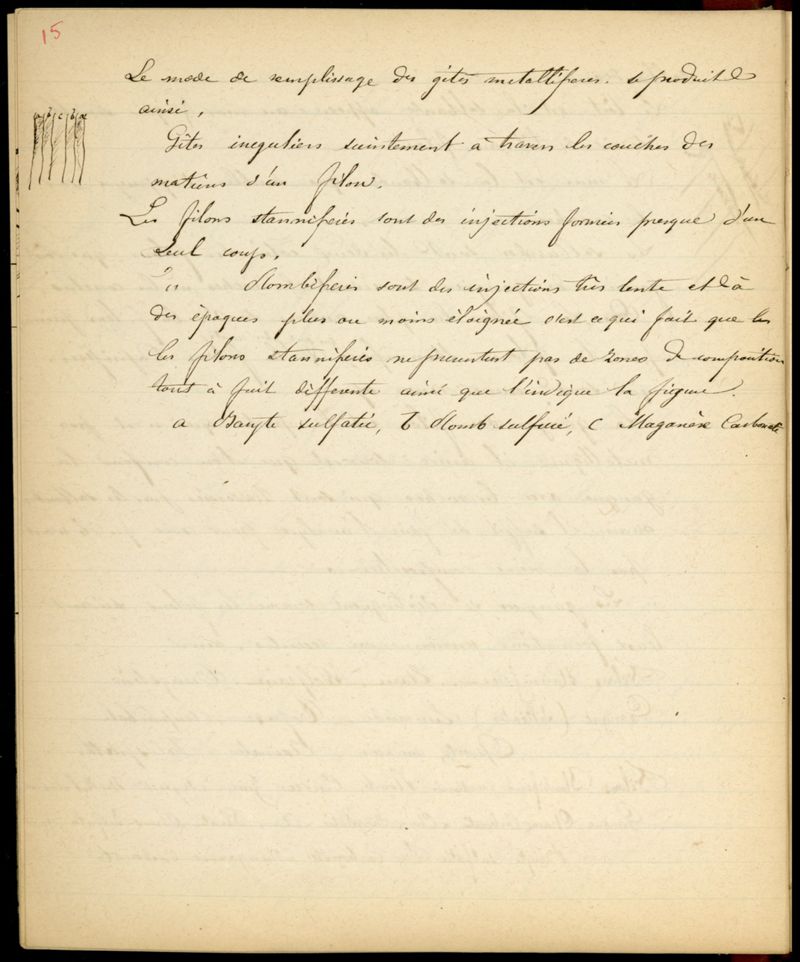 15
Le mode de remplissage des gites metallifères. se produit
ainsi,
a b c b a
Gites ireguliers suintement a travers les couches des
matières d'un filon.
Les filons stannifères sont des injections formées presque d'un
seul coup.
" Plombifères sont des injections très lente et à
des époques plus ou moins éloignée c'est ce qui fait que les
les filons stannifères ne presentent pas de zones de composition
tout à fait differente ainsi que l'indique la figure.
a Baryte sulfatée, b Plomb sulfuré, c Maganèse Carbonaté